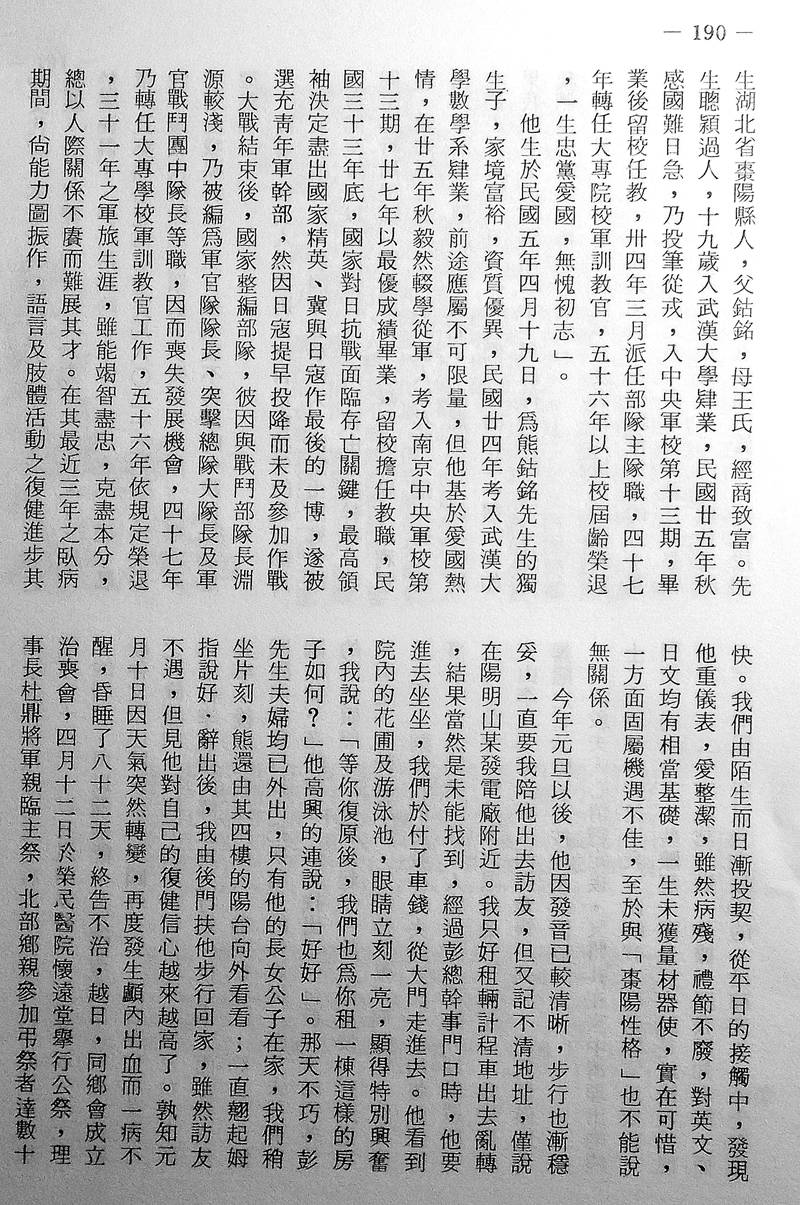 — 190 —
生湖北省棗陽縣人，父鈷銘，母王氏，經商致富。先
生聰穎過人，十九歲入武漢大學肄業，民國廿五年秋
感國難日急，乃投筆從戎，入中央軍校第十三期，畢
業後留校任教，卅四年三月派任部隊主隊職，四十七
年轉任大專院校軍訓教官，五十六年以上校屆齡榮退
，一生忠黨愛國，無愧初志」。
他生於民國五年四月十九日，爲熊鈷銘先生的獨
生子，家境富裕，資質優異，民國廿四年考入武漢大
學數學系肄業，前途應屬不可限量，但他基於愛國熱
情，在廿五年秋毅然輟學從軍，考入南京中央軍校第
十三期，廿七年以最優成績畢業，留校擔任教職，民
國三十三年底，國家對日抗戰面臨存亡關鍵，最高領
袖決定盡出國家精英、冀與日寇作最後的一博，遂被
選充靑年軍幹部，然因日寇提早投降而未及參加作戰
。大戰結束後，國家整編部隊，彼因與戰鬥部隊長淵
源較淺，乃被編爲軍官隊隊長、突擊總隊大隊長及軍
官戰鬥團中隊長等職，因而喪失發展機會，四十七年
乃轉任大專學校軍訓教官工作，五十六年依規定榮退
，三十一年之軍旅生涯，雖能竭智盡忠，克盡本分，
總以人際關係不賡而難展其才。在其最近三年之臥病
期間，尙能力圖振作，語言及肢體活動之復健進步其
快。我們由陌生而日漸投契，從平日的接觸中，發現
他重儀表，愛整潔，雖然病殘，禮節不廢，對英文、
日文均有相當基礎，一生未獲量材器使，實在可惜，
一方面固屬機遇不佳，至於與「棗陽性格」也不能說
無關係。
今年元旦以後，他因發音已較清晰，步行也漸穩
妥，一直要我陪他出去訪友，但又記不清地址，僅說
在陽明山某發電廠附近。我只好租輛計程車出去亂轉
，結果當然是未能找到，經過彭總幹事門口時，他要
進去坐坐，我們於付了車錢，從大門走進去。他看到
院內的花圃及游泳池，眼睛立刻一亮，顯得特別興奮
，我說：「等你復原後，我們也爲你租一棟這樣的房
子如何？」他高興的連說：「好好」。那天不巧，彭
先生夫婦均已外出，只有他的長女公子在家，我們稍
坐片刻，熊還由其四樓的陽台向外看看；一直翹起姆
指說好．辭出後，我由後門扶他步行回家，雖然訪友
不遇，但見他對自己的復健信心越來越高了。孰知元
月十日因天氣突然轉變，再度發生顱內出血而一病不
醒，昏睡了八十二天，終告不治，越日，同鄉會成立
治喪會，四月十二日於榮民醫院懷遠堂舉行公祭，理
事長杜鼎將軍親臨主祭，北部鄉親參加弔祭者達數十